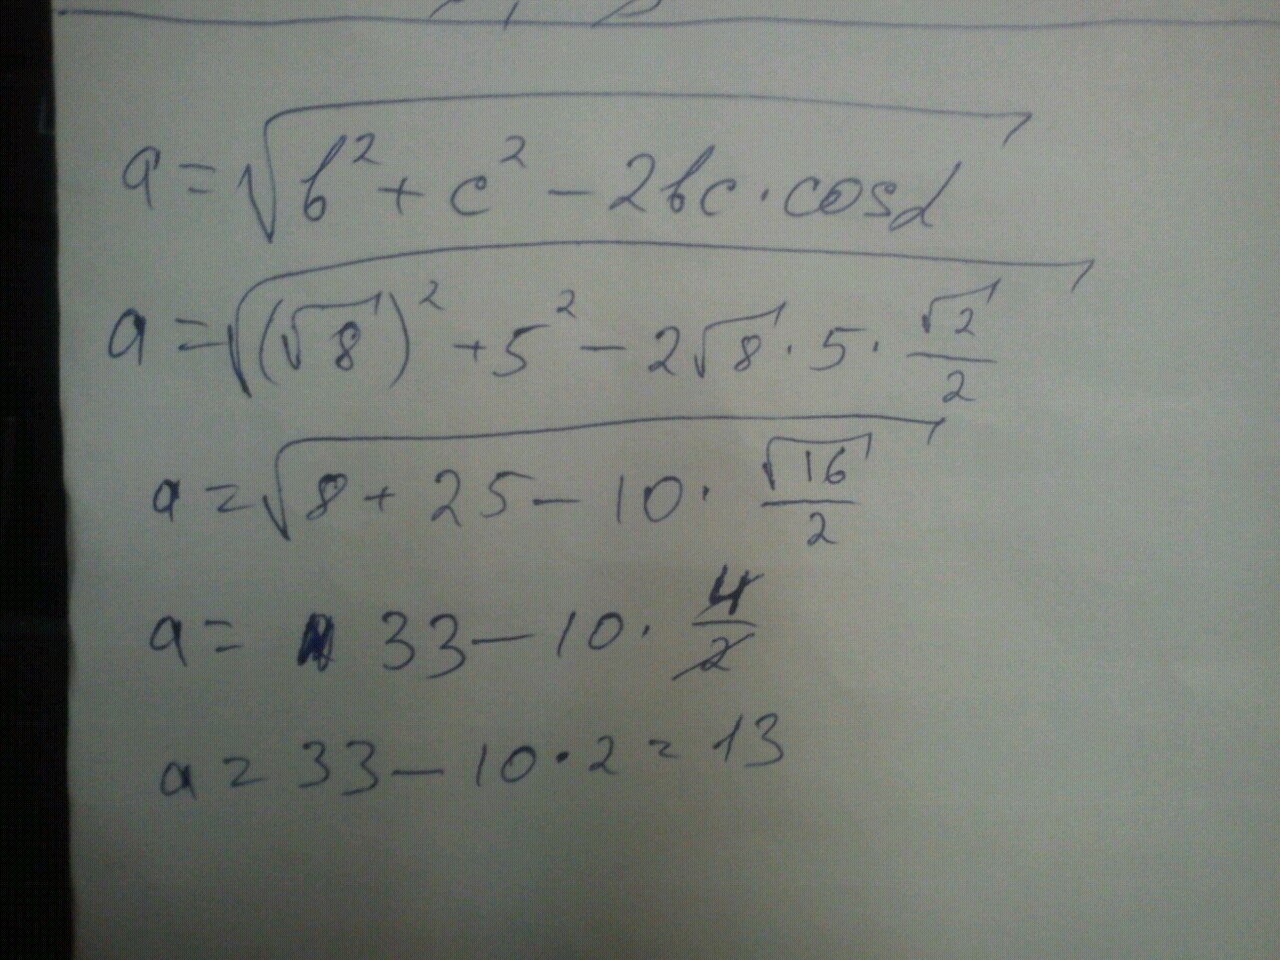 a = √(b² + c² − 2bc · cosα)
a = √((√8)² + 5² − 2√8 · 5 · √2/2)
a = √(8 + 25 − 10 · √16/2)
a = 33 − 10 · 4/2
a = 33 − 10 · 2 = 13